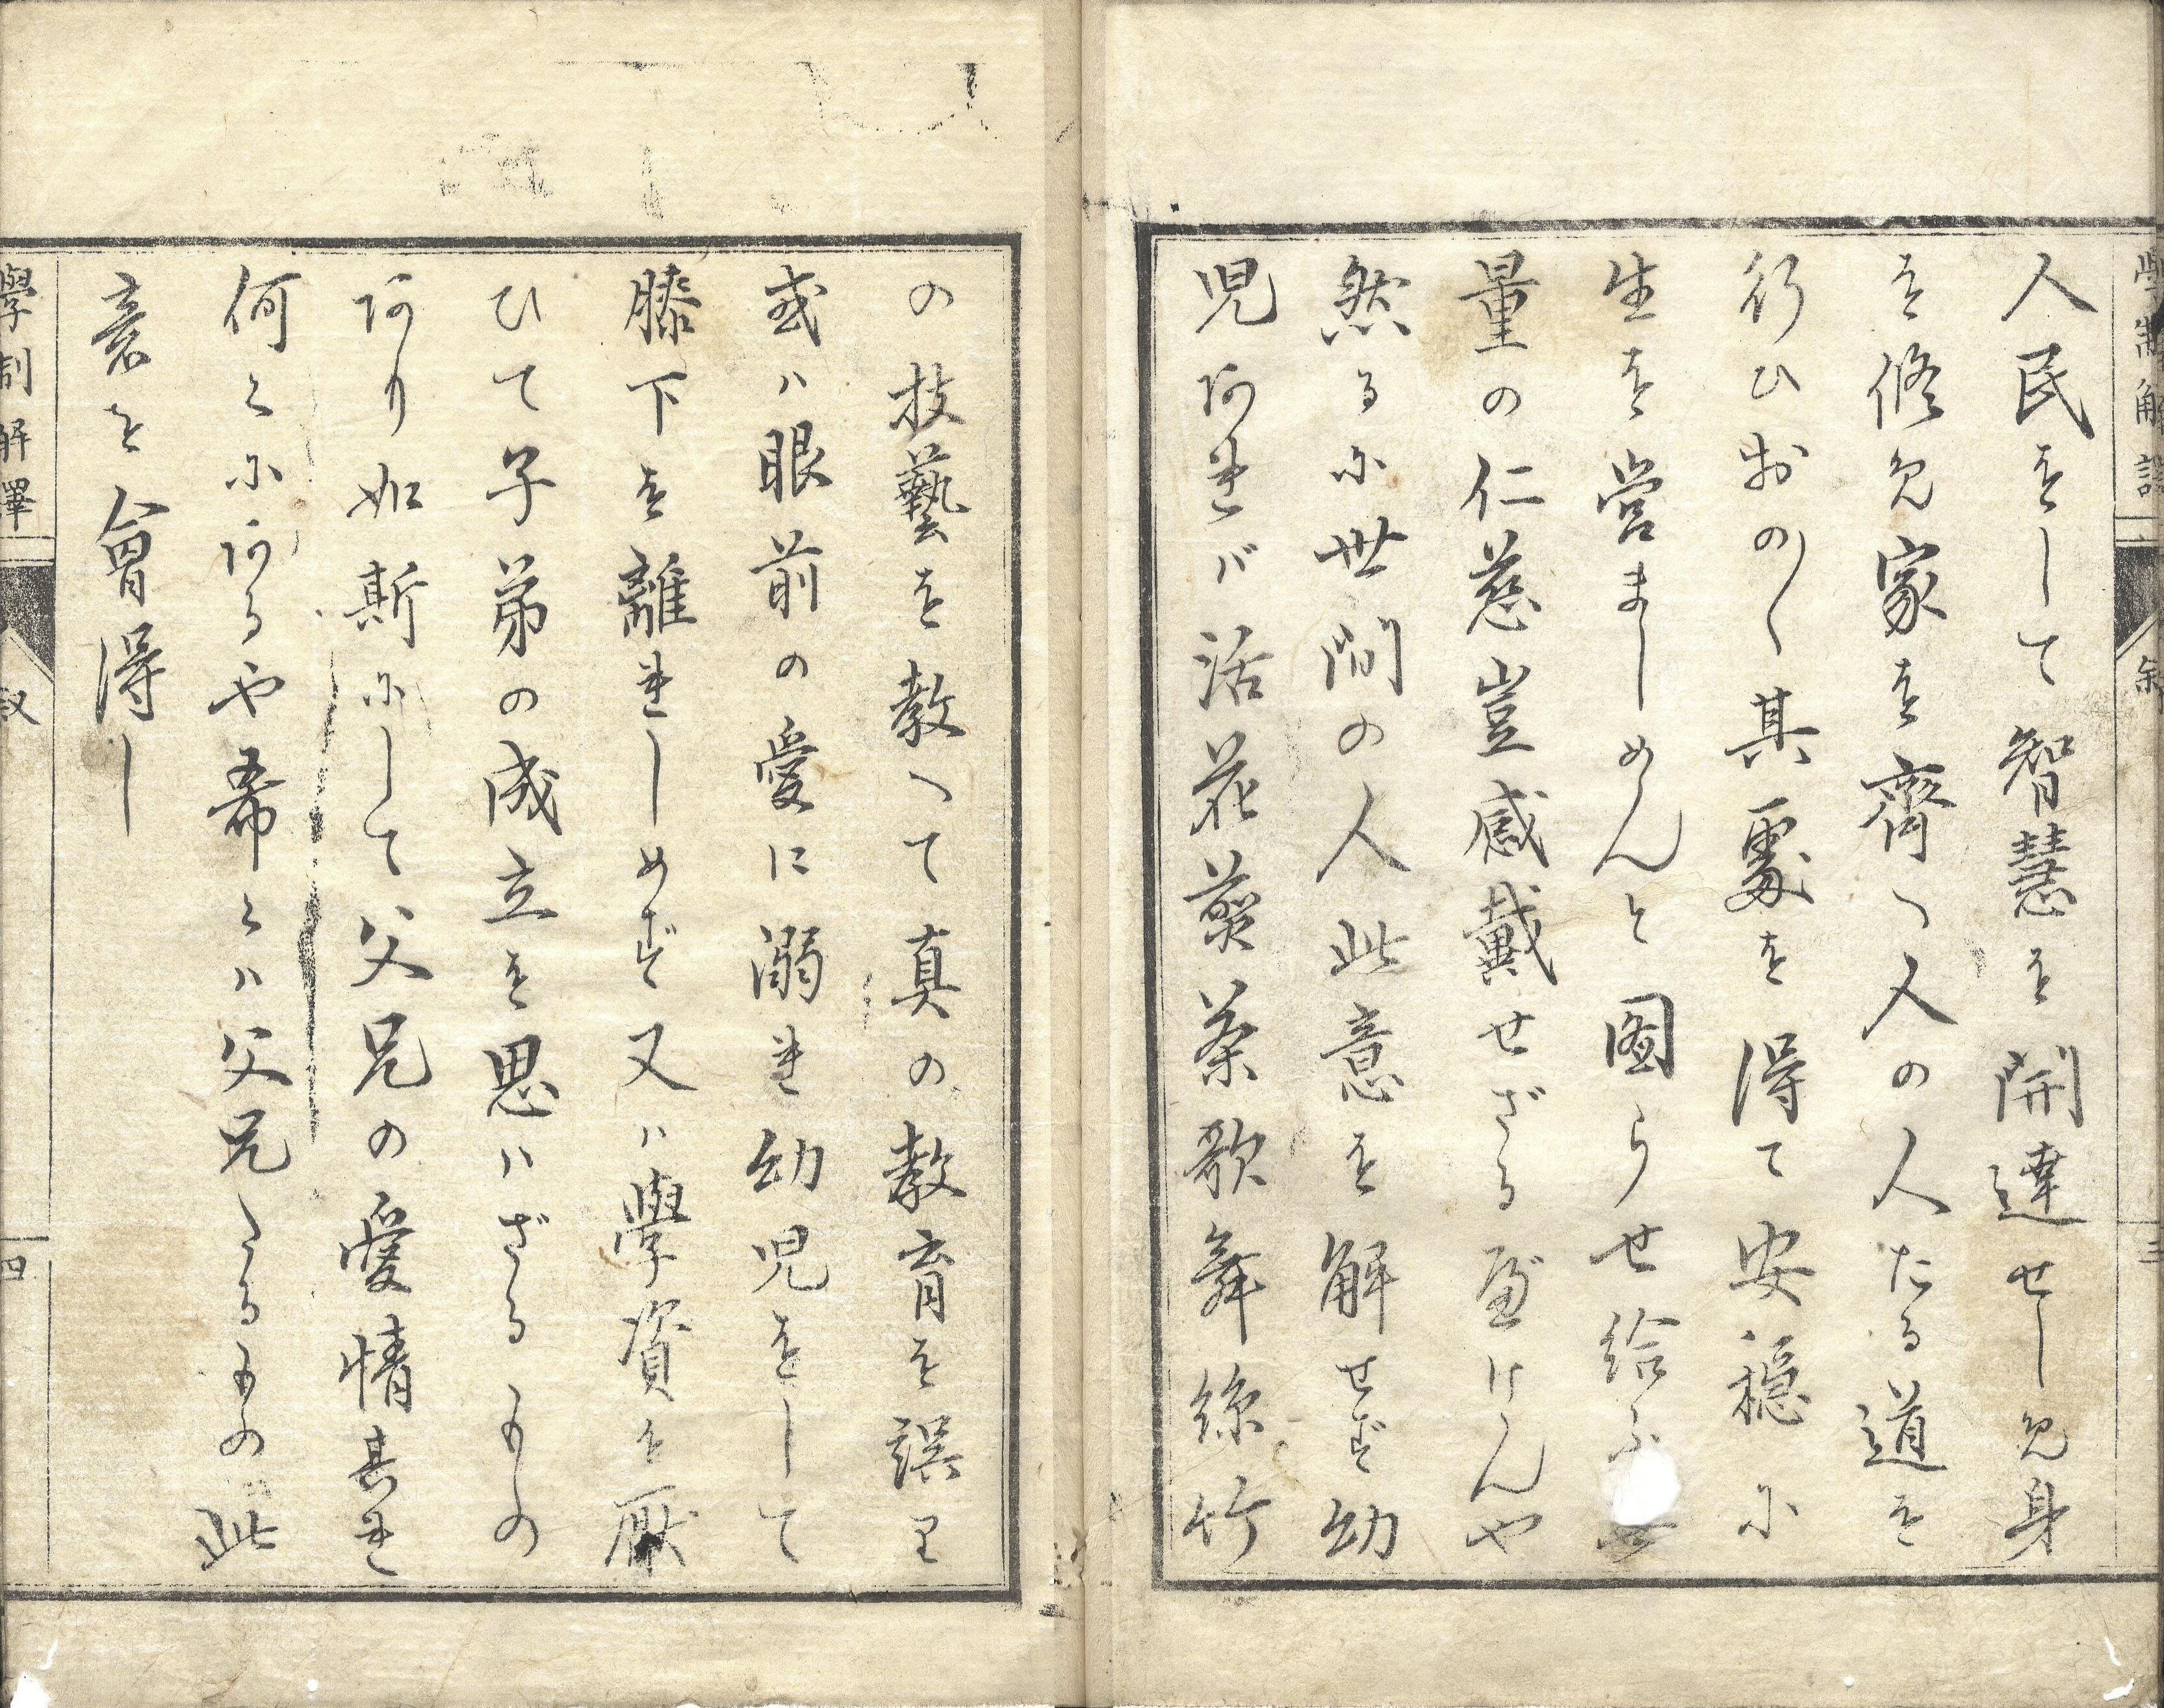 學制解譯
叙
三
人民をして智慧を開達せしめ身
を修め家を齊へ人の人たる道を
行ひおの〱其處を得て安穏に
生を営ましめんと図らせ給ふ
量の仁慈豈感戴せざるべけんや
然るに世間の人此意を解せず幼
児あれバ活花煎茶歌舞絲竹
の技藝を教へて真の教育を誤り
或ハ眼前の愛に溺れ幼児をして
膝下を離れしめず又ハ學資を厭
ひて子弟の成立を思ハざるもの
あり如斯にして父兄の愛情其れ
何くにあるや希くハ父兄たるもの此
意を會得し
學制解譯
叙
四